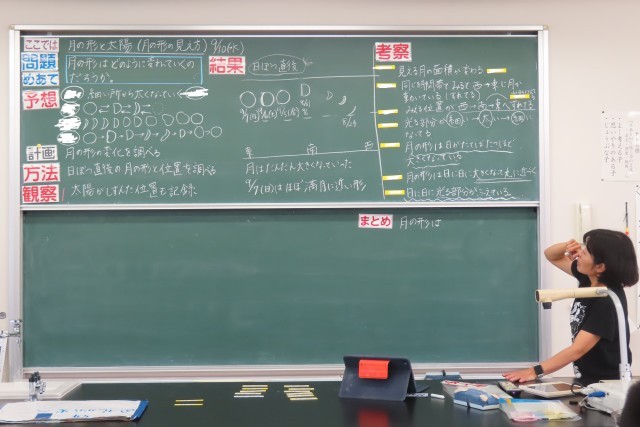 ここでは
月の形と太陽(月の形の見え方) 9/10(水)
問題
めあて
月の形はどのように変わっていくの
だろうか。
予想
細い所から太くなっていく
計画
月の形の変化を調べる
方法
日ぼつ直後の月の形と位置を調べる
観察
太陽がしずんだ位置も記録
結果
日ぼつ直後
東 南 西
月はだんだん大きくなっていった
9/7(日)はほぼ満月に近い形
考察
見える月の面積が変わる
同じ時間帯でみると西→東に月が
動いている(ずれてる)
みえる位置が西→東へずれてる
光る部分が
なってる
月の形は日がたてばたつほど
大きくなっている
月の形は日に日に大きくなって
月に日に光る部分がふえている。
まとめ
月の形は